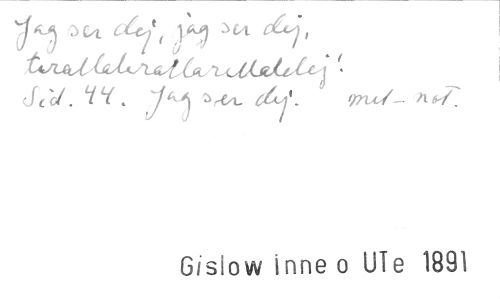 Jag ser dej, jag ser dej,
trrallalirallarillalelej!
Sid. 44. Jag ser dej. met-not.
Gislow Inne o UTe 1891